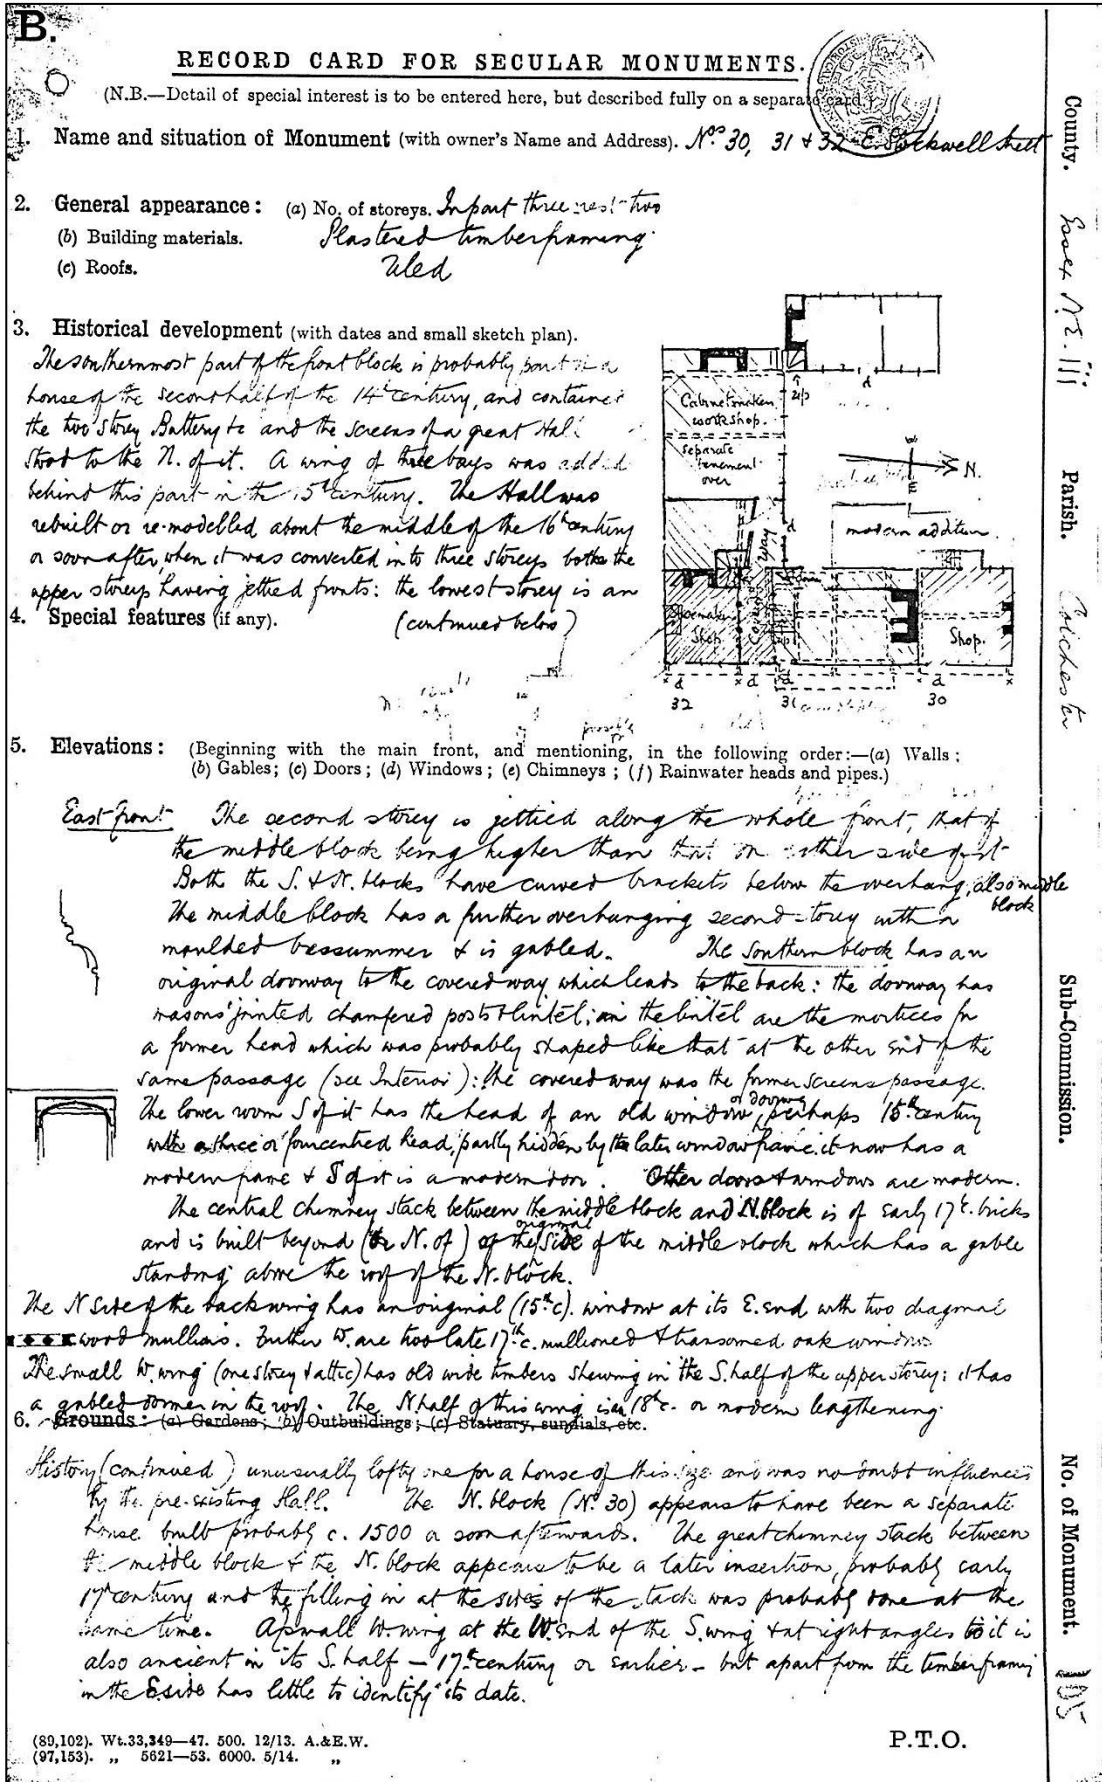 B.
RECORD CARD FOR SECULAR MONUMENTS.
(N.B.—Detail of special interest is to be entered here, but described fully on a separate card.)
1. Name and situation of Monument (with owner's Name and Address). Nos 30, 31 & 32 E. Stockwell Street
2. General appearance: (a) No. of storeys. In part three rest two
(b) Building materials. Plastered timberframing.
(c) Roofs. Tiled
3. Historical development (with dates and small sketch plan).
The southernmost part of the front block is probably part of a
house of the second half of the 14th century, and contained
the two storey Buttery &c and the screens of a great Hall
stood to the N. of it. A wing of three bays was added
behind this part in the 15th century. The Hall was
rebuilt or re-modelled about the middle of the 16th century
or soon after, when it was converted into three storeys both the
upper storeys having jettied fronts: the lowest storey is an
4. Special features (if any). (continued below)
Cabinetmakers
workshop.
separate
tenement
over
up
d
N.
W
E
modern addition.
way
d
Shoemakers
Shop
Shop.
d d d d
32 31 30
5. Elevations: (Beginning with the main front, and mentioning, in the following order:—(a) Walls;
(b) Gables; (c) Doors; (d) Windows; (e) Chimneys; (f) Rainwater heads and pipes.)
East front The second storey is jettied along the whole front, that of
the middle block being higher than that on either side of it
Both the S. & N. blocks have curved brackets below the overhang, also middle
block
The middle block has a further overhanging second storey with a
moulded bessummer & is gabled. The southern block has an
original doorway to the covered way which leads to the back: the doorway has
masons' jointed chamfered posts & lintel; in the lintel are the mortices for
a former head which was probably shaped like that at the other end of the
same passage (see Interior): the covered way was the former screens passage.
The lower room S of it has the head of an old window or doorway, perhaps 15th century
with a three or fourcentred head, partly hidden by the later window frame. it now has a
modern frame & S of it is a modern door. Other doors & windows are modern.
The central chimney stack between the middle block and N. block is of early 17th c. bricks
and is built beyond (the N. of) the original side of the middle block which has a gable
standing above the roof of the N. block.
The N side of the back wing has an original (15th c). window at its E. end with two diagonal
wood mullions. Further W. are two late 17th c. mullioned & transomed oak windows
The small W. wing (one storey & attic) has old wide timbers shewing in the S. half of the upper storey: it has
a gabled dormer in the roof. The N. half of this wing is an 18th c. or modern lengthening.
6. Grounds: (a) Gardens; (b) Outbuildings; (c) Statuary, sundials, etc.
History (continued) unusually lofty one for a house of this size and was no doubt influenced
by the pre-existing Hall. The N. block (No. 30) appears to have been a separate
house built probably c. 1500 or soon afterwards. The great chimney stack between
the middle block & the N. block appears to be a later insertion, probably early
17th century and the filling in at the sides of the stack was probably done at the
same time. A small W. wing at the W. end of the S. wing & at right angles to it is
also ancient in its S. half — 17th century or earlier — but apart from the timberframing
in the E side has little to identify its date.
(89,102). Wt.33,349—47. 500. 12/13. A.&E.W.
(97,153). „ 5621—53. 6000. 5/14. „
P.T.O.
County. Essex N.E. iii
Parish. Colchester
Sub-Commission.
No. of Monument. 195